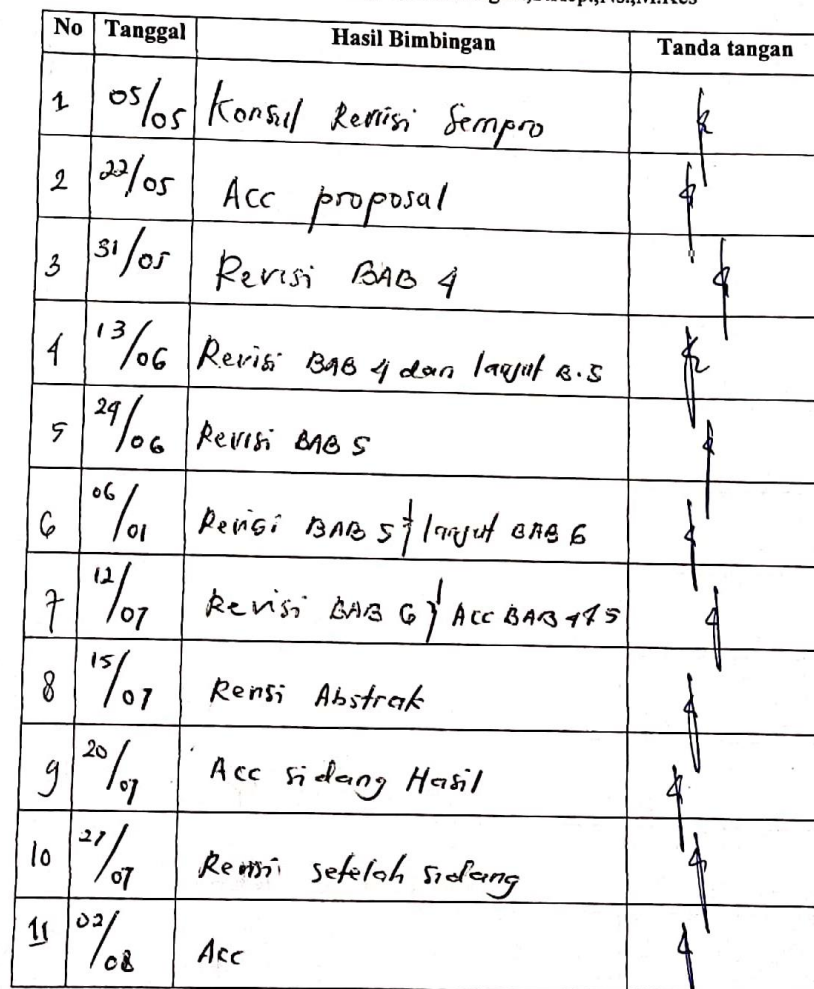 No Tanggal Hasil Bimbingan Tanda tangan
1 05/05 Konsul Revisi Sempro
2 22/05 Acc proposal
3 31/05 Revisi BAB 4
4 13/06 Revisi BAB 4 dan lanjut B.5
5 29/06 Revisi BAB 5
6 06/01 Revisi BAB 5 } lanjut BAB 6
7 12/07 Revisi BAB 6 } Acc BAB 4 & 5
8 15/07 Revisi Abstrak
9 20/07 Acc sidang Hasil
10 27/07 Revisi setelah sidang
11 02/08 Acc